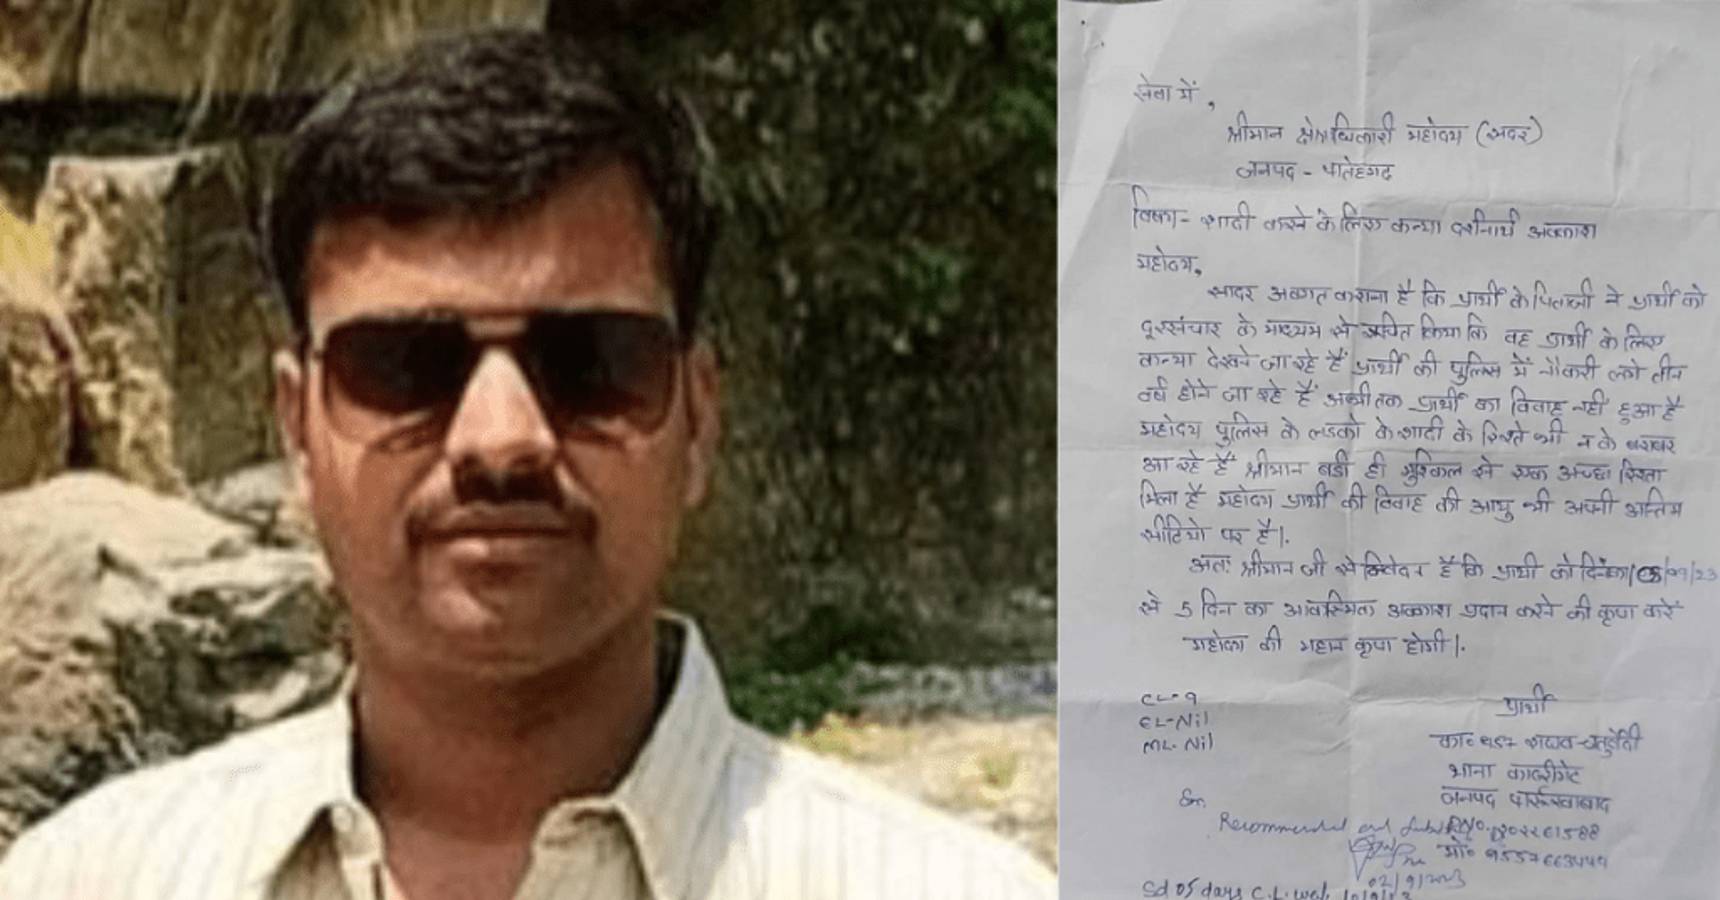 सेवा में,
श्रीमान क्षेत्राधिकारी महोदय (सदर)
जनपद - फतेहगढ
विषय - शादी करने के लिए कन्या दर्शनार्थ अवकाश
महोदय,
सादर अवगत कराना है कि प्रार्थी के पिताजी ने प्रार्थी को
दूरसंचार के माध्यम से सूचित किया कि वह प्रार्थी के लिए
कन्या देखने जा रहे हैं प्रार्थी की पुलिस में नौकरी लगे तीन
वर्ष होने जा रहे हैं अभी तक प्रार्थी का विवाह नहीं हुआ है
महोदय पुलिस के लडको के शादी के रिश्ते भी न के बराबर
आ रहे हैं श्रीमान बडी ही मुश्किल से एक अच्छा रिश्ता
मिला है महोदय प्रार्थी की विवाह की आयु भी अपनी अन्तिम
सीढियो पर है।
अतः श्रीमान जी से निवेदन है कि प्रार्थी को दिनांक
से 5 दिन का आकस्मिक अवकाश प्रदान करने की कृपा करें
महोदय की महान कृपा होगी।
CL-9
EL-Nil
ML-Nil
प्रार्थी
का० राघव चतुर्वेदी
थाना कादरीगेट
जनपद फर्रुखाबाद
Sir,
Recommended and
मो०
02/9/2023
05 days C.L.